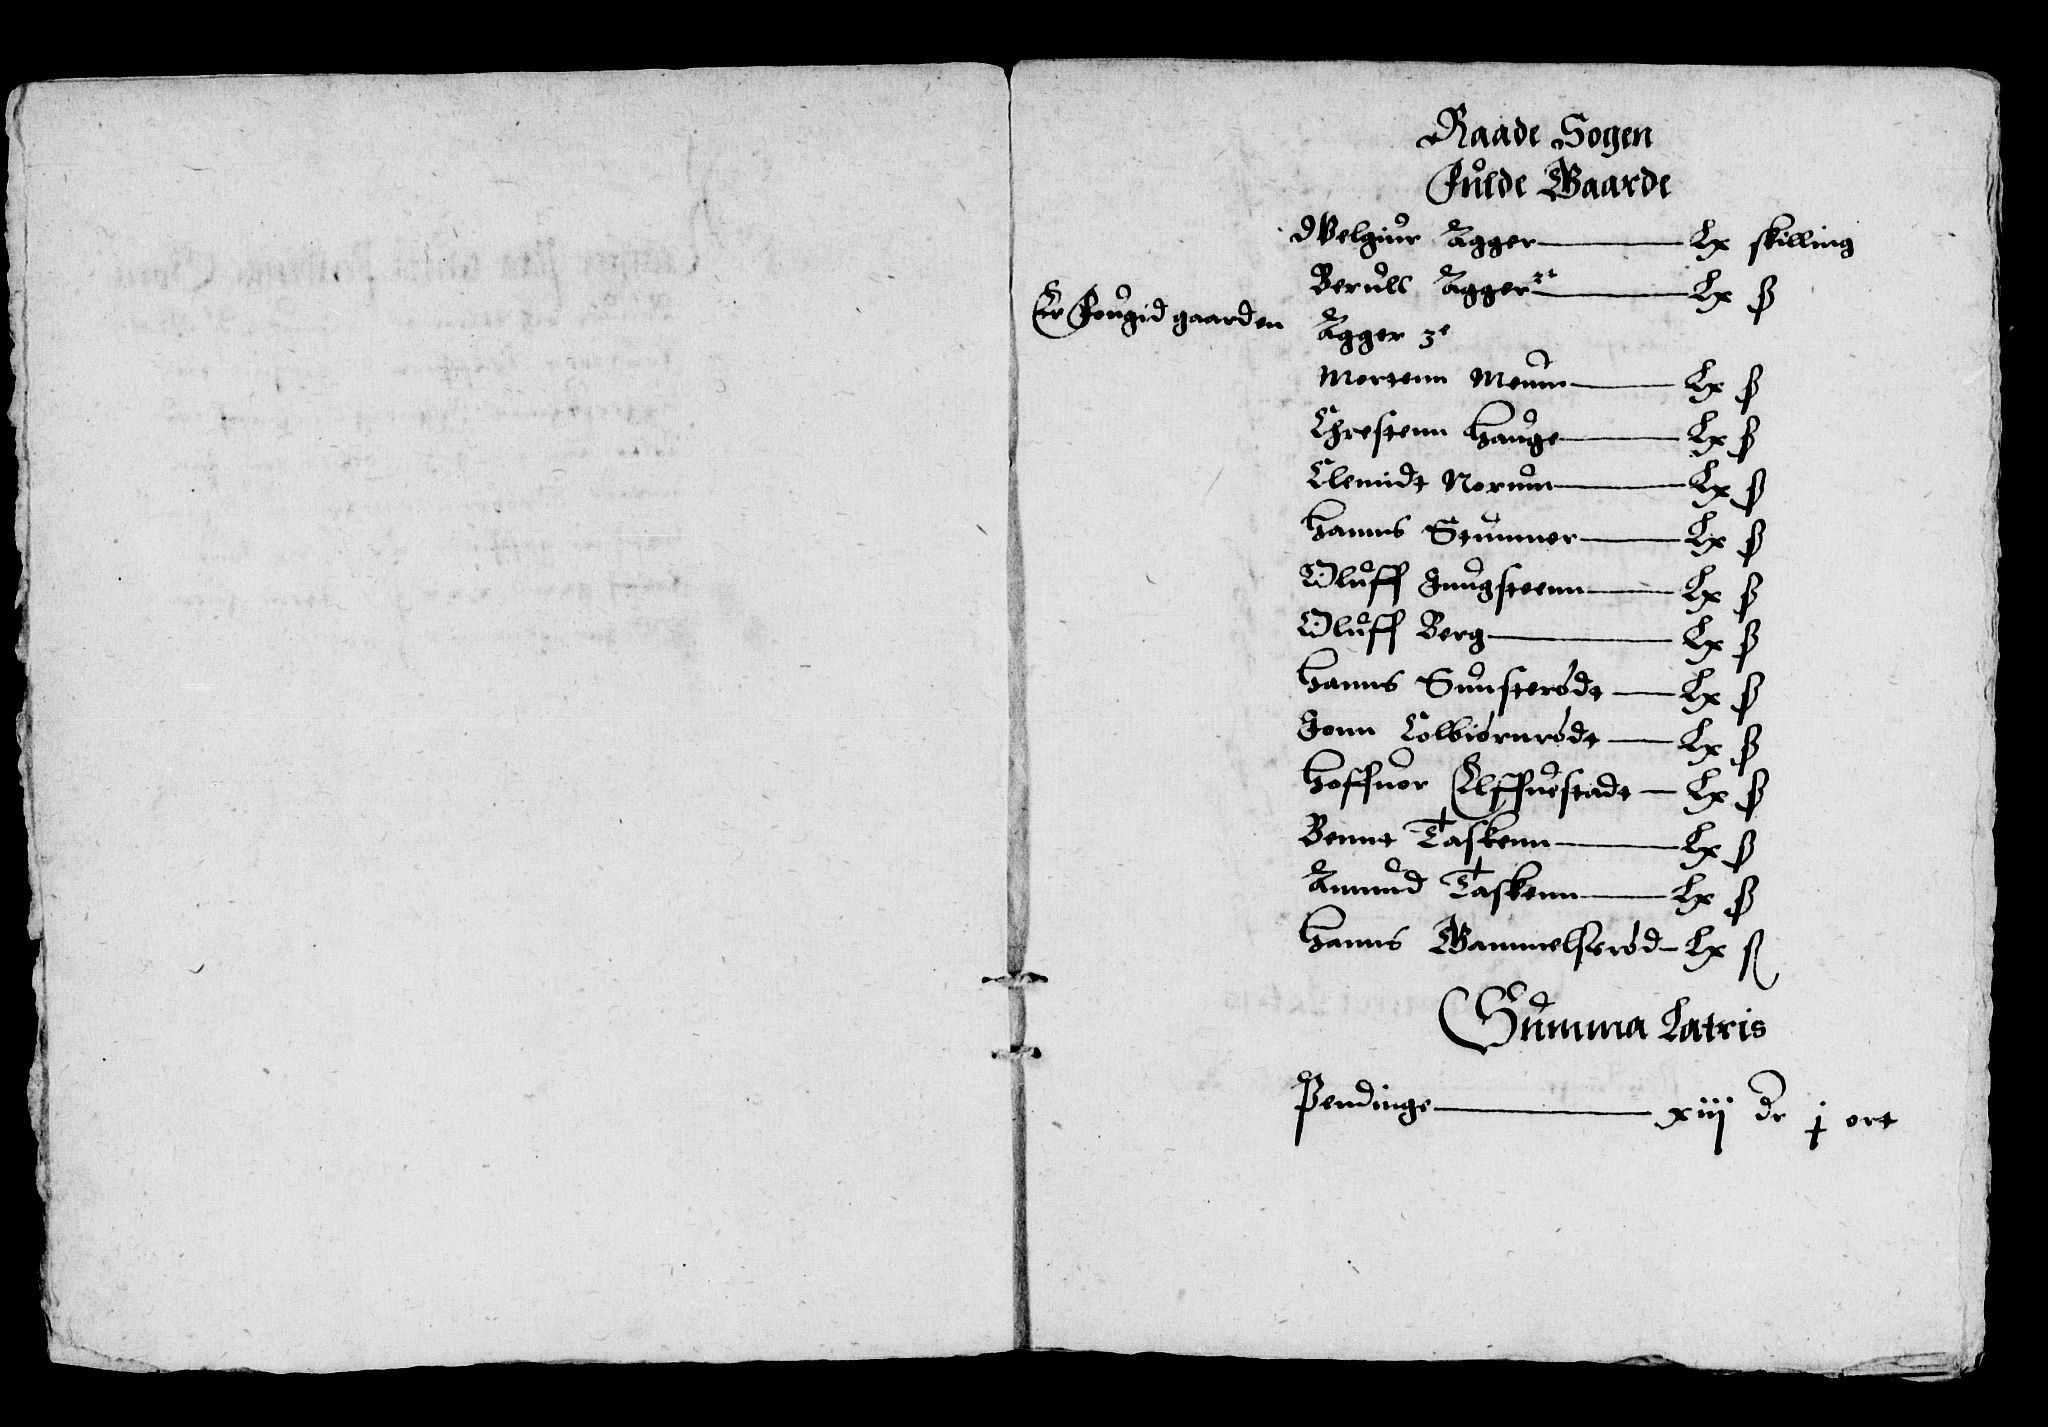 Raade Sogen
Fulde Gaarde
Welgiur Agger — Lx skilling
Berull Agger — Lx ß
Er Fougid gaarden Agger 3e
Mortenn Menum — Lx ß
Chrestenn Hauge — Lx ß
Clemidt Norum — Lx ß
Hanns Stummer — Lx ß
Oluff Jungsteenn — Lx ß
Oluff Berg — Lx ß
Hanns Sunsterødt — Lx ß
Jonn Colbiørnrødt — Lx ß
Hoffuor Elffuestadt — Lx ß
Bennt Taskenn — Lx ß
Amund Taskenn — Lx ß
Hanns Gammelserød — Lx ß
Summa Latris
Pendinge — xiij dr j ort